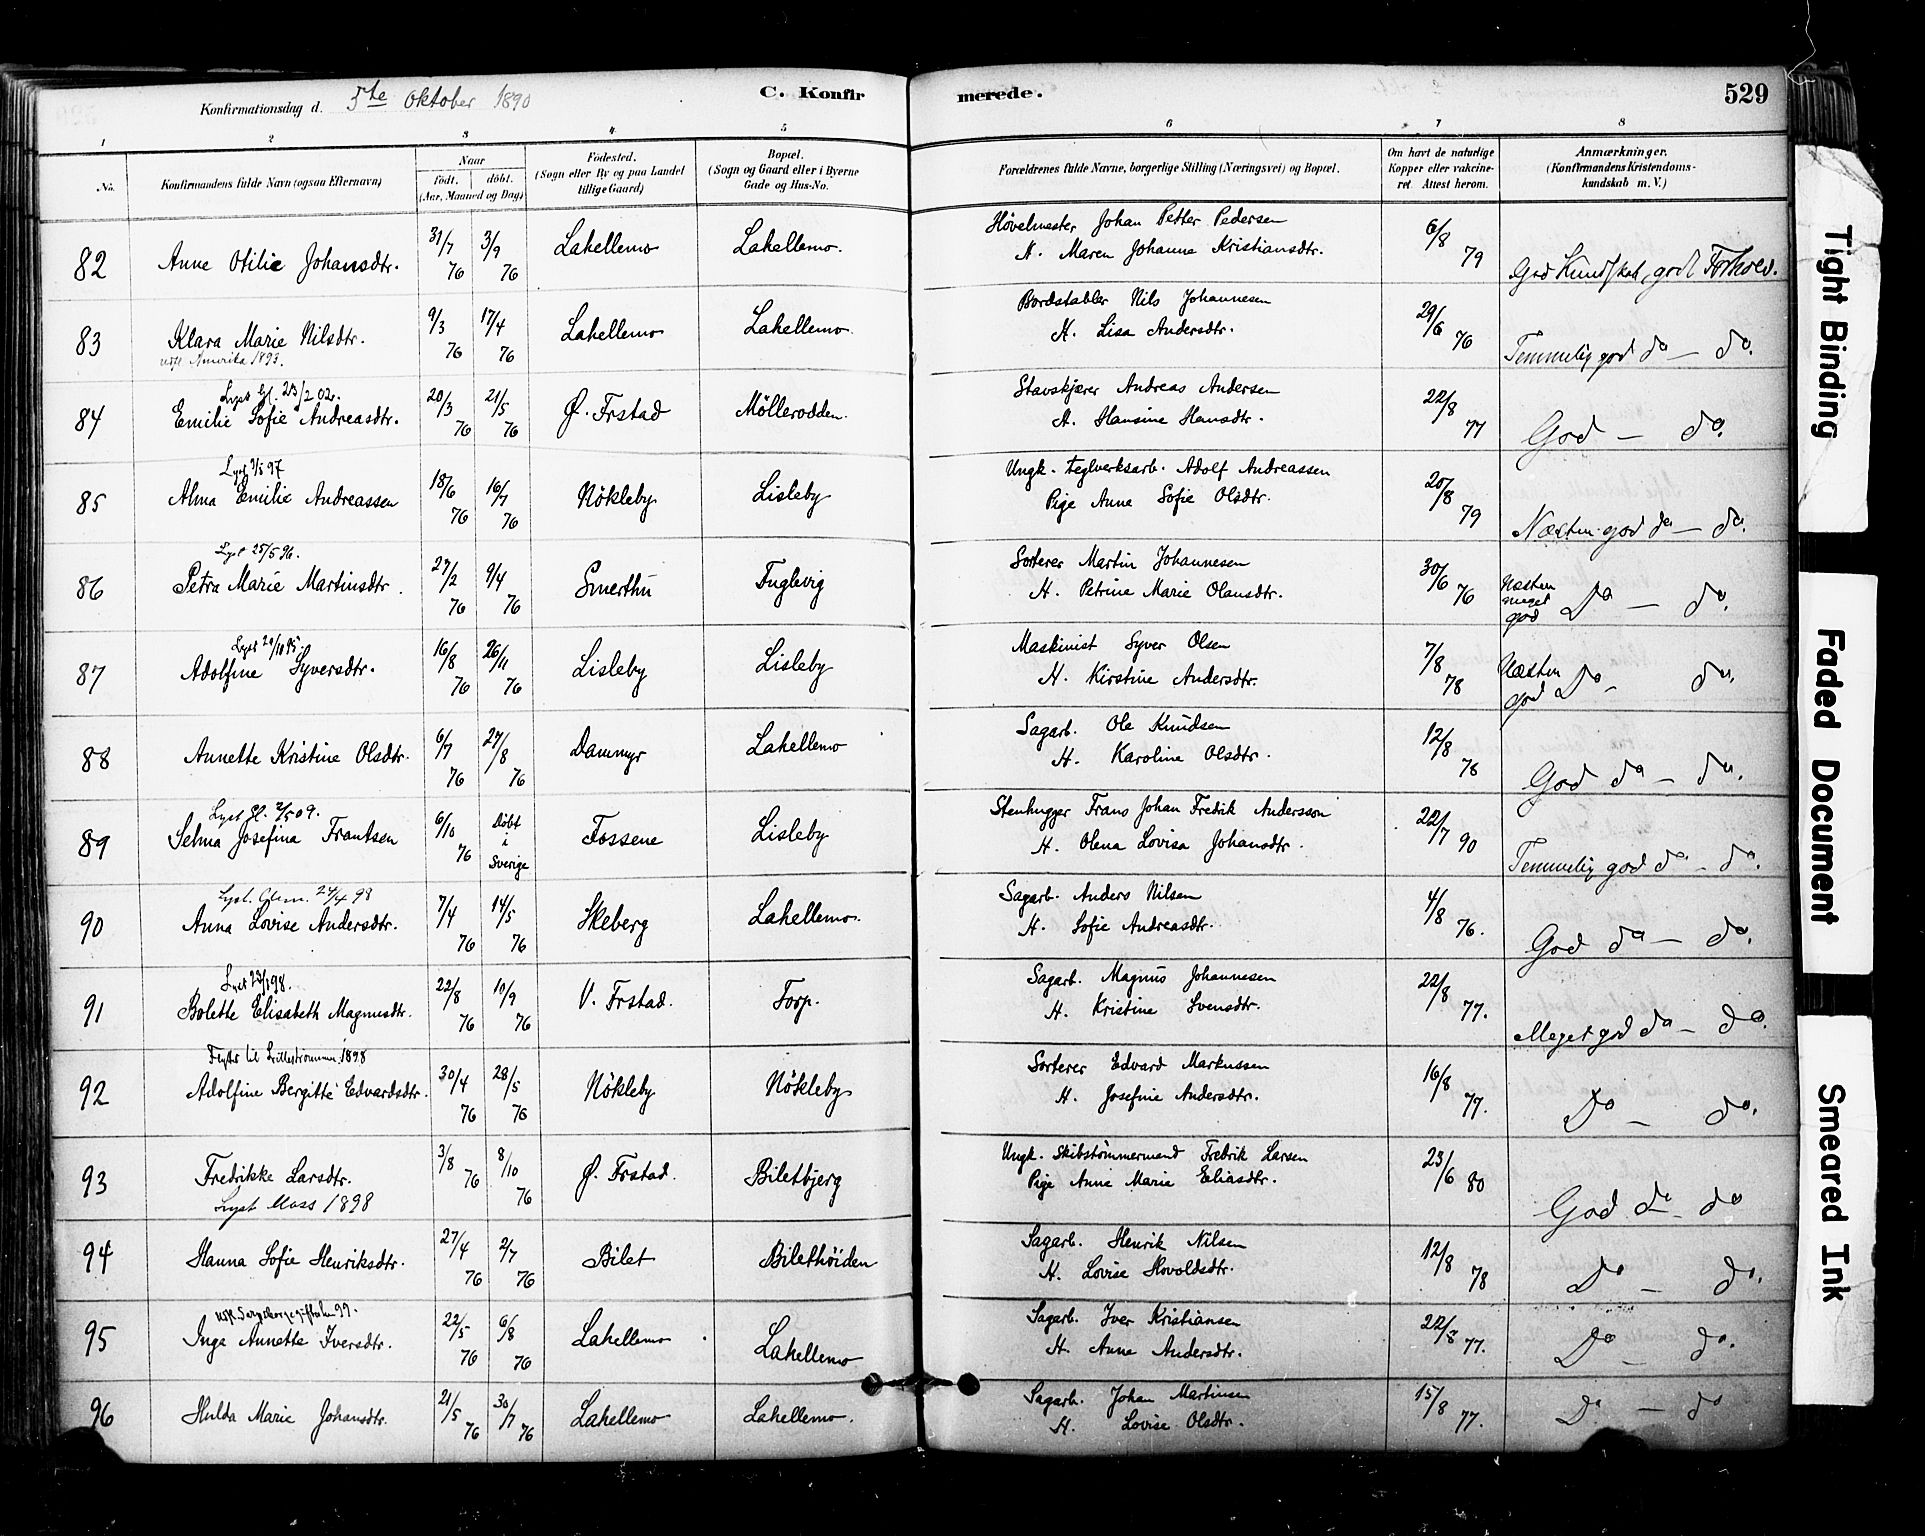 Konfirmationsdag d. 5te Oktober 1890 C. Konfirmerede. 529
1 2 3 4 5 6 7 8
No. Konfirmandens fulde Navn (ogsaa Efternavn) Naar født. døbt. (Aar, Maaned og Dag) Fødested. (Sogn eller By og paa Landet tillige Gaard) Bopæl. (Sogn og Gaard eller i Byerne Gade og Hus-No. Forældrenes fulde Navne, borgerlige Stilling (Næringsvei) og Bopæl. Om havt de naturlige Kopper eller vakcineret. Attest herom. Anmærkninger. (Konfirmandens Kristendomskundskab m. V.)
82 Anne Otilie Johansdtr. 31/7 76 3/9 76 Lahellemo Lahellemo. Høvelmester Johan Petter Pedersen
H. Maren Johanne Kristiansdtr. 6/8 79 God Kundskab, godt Forhold.
83 Klara Marie Nilsdtr. 9/3 76 17/4 76 Lahellemo Lahellemo. Bordstabler Nils Johannesen
Amerika 1893. H. Lisa Andersdtr. 29/6 76 Temmelig god do — do.
Lyst Gl. 23/2 02.
84 Emilie Sofie Andreasdtr. 20/3 76 21/5 76 Ø. Frstad Möllerodden. Stavskjærer Andreas Andersen
H. Hansine Hansdtr. 22/8 77 God — do.
85 Alma Emilie Andreassen 18/6 76 16/7 76 Nökleby Lisleby Ungk. Teglverksarb. Adolf Andreassen
Pige Anne Sofie Olsdtr. 20/8 79 Næsten god do — do.
Lyst 25/5 96.
86 Petra Marie Martinsdtr. 27/2 76 9/4 76 Smerthu Fuglevig Sorterer Martin Johannesen
H. Petrine Marie Olausdtr. 30/6 76 Næsten meget god Do — do.
Lyst 20/10 95.
87 Adolfine Syversdtr. 16/8 76 26/11 76 Lisleby Lisleby Maskinist Syver Olsen
H. Kirstine Andersdtr. 7/8 78 Næsten god Do — do.
88 Annette Kristine Olsdtr. 6/7 76 27/8 76 Dammyr Lahellemo Sagarb. Ole Knudsen
H. Karoline Olsdtr. 12/8 78 God do — do.
Lyst Gl. 2/5 09.
89 Selma Josefina Frantsen 6/10 76 Döbt i Sverige Fossene Lisleby Stenhugger Frans Johan Fredrik Andersson
H. Olena Lovisa Johansdtr. 22/7 90 Temmelig god do — do.
Lyst. Glem. 24/4 98
90 Anna Lovise Andersdtr. 7/4 76 14/5 76 Skeberg Lahellemo. Sagarb. Anders Nilsen
H. Sofie Andreasdtr. 4/8 76. God do — do.
91 Bolette Elisabeth Magnusdtr. 22/8 76 10/9 76 V. Frstad. Torp. Sagarb. Magnus Johannesen
H. Kristine Svensdtr. 22/8 77. Meget god do — do.
Flytter til Lillestrømmen 1898
92 Adolfine Bergitte Edvardsdtr. 30/4 76 28/5 76 Nökleby Nökleby Sorterer Edvard Markussen
H. Josefine Andersdtr. 16/8 77. Do — do.
93 Fredrikke Larsdtr. 3/8 76 8/10 76 Ø. Frstad. Biletbjerg Ungk. Skibstømmermand Fredrik Larsen
Lyst Moss 1898 Pige Anne Marie Eliasdtr. 23/6 80 God do — do
94 Hanna Sofie Henriksdtr. 27/4 76 2/7 76 Bilet Bilethöiden Sagarb. Henrik Nilsen
H. Lovise Hovoldsdtr. 12/8 78 Do — do.
95 Inga Annette Iversdtr. 22/5 76 6/8 76 Lahellemo Lahellemo Sagarb. Iver Kristiansen
H. Anne Andersdtr. 22/8 77. Do — do.
96 Hulda Marie Johansdtr. 21/5 76 30/7 76 Lahellemo Lahellemo. Sagarb. Johan Martinsen
H. Lovise Olsdtr. 15/8 77. Do — do
Tight Binding
Faded Document
Smeared Ink